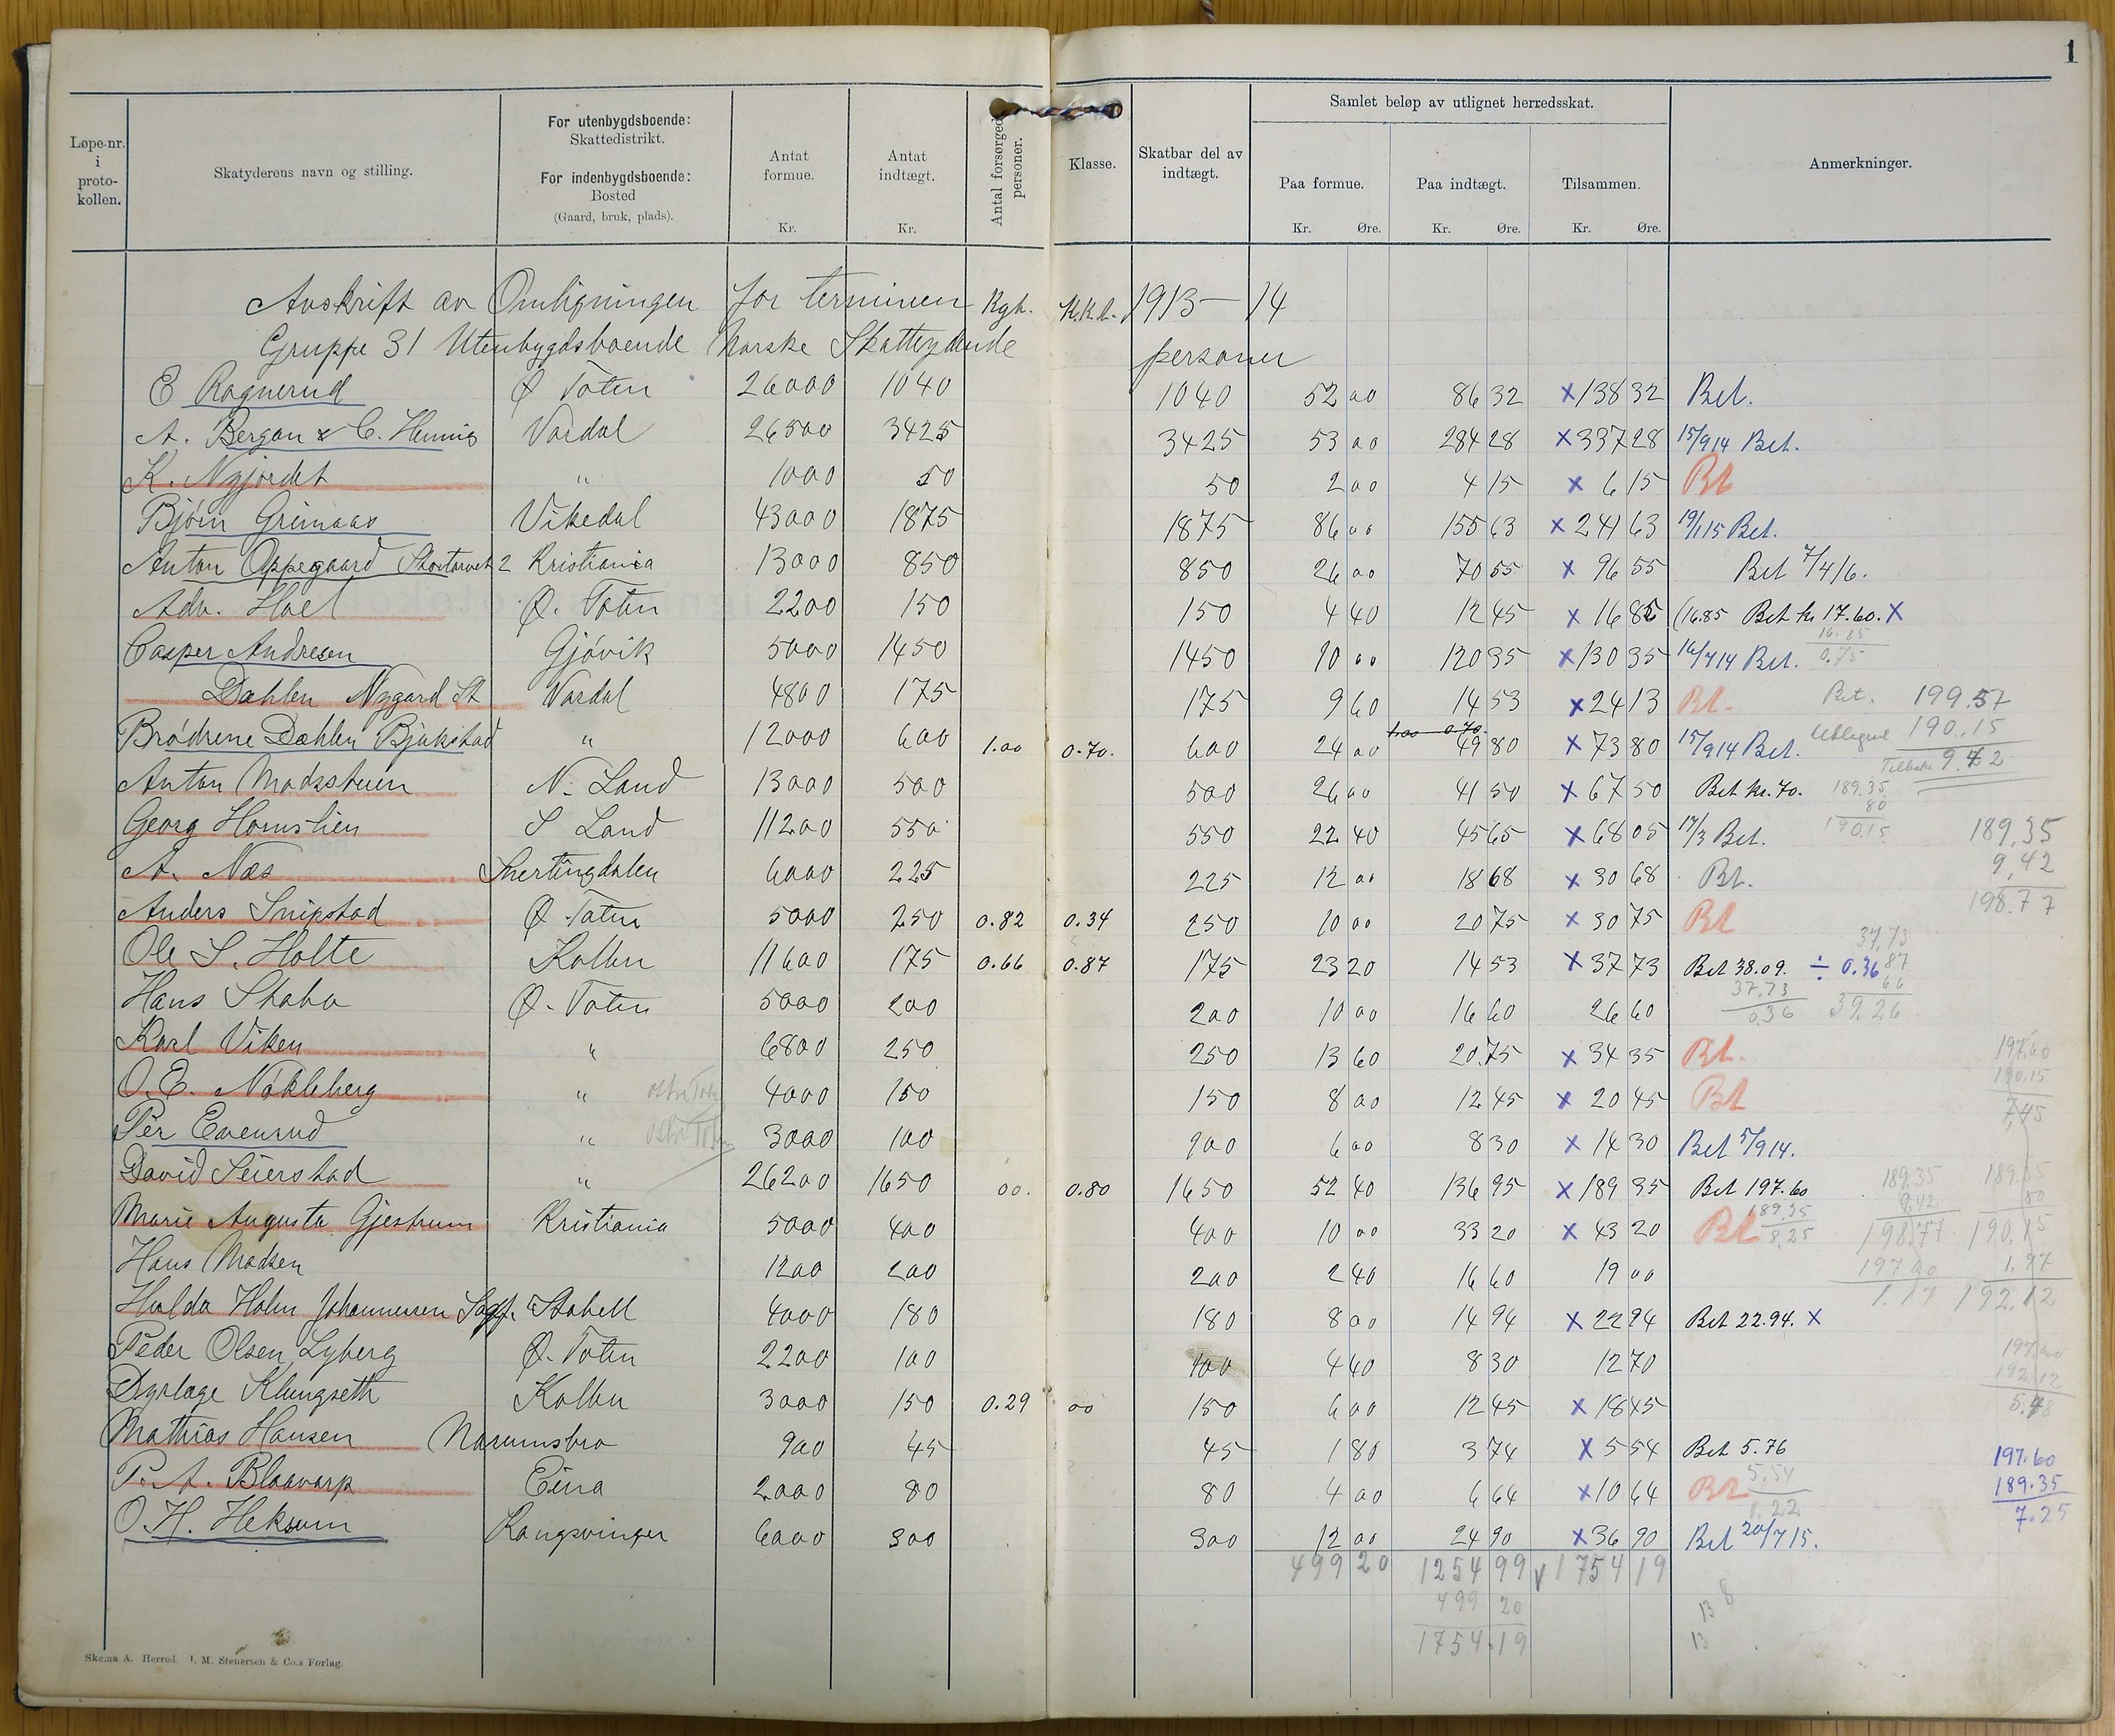 1
Løpe-nr. i proto-kollen.
Skatyderens navn og stilling.
For utenbygdsboende: Skattedistrikt.
For indenbygdsboende: Bosted (Gaard, bruk, plads).
Antat formue. Kr.
Antat indtægt. Kr.
Antal forsørgede personer.
Klasse.
Skatbar del av indtægt.
Samlet beløp av utlignet herredsskat.
Paa formue. Kr. Øre.
Paa indtægt. Kr. Øre.
Tilsammen. Kr. Øre.
Anmerkninger.
Avskrift av Omligningen for terminen Kgh. K.K.h. 1913 — 14
Gruppe 31 Utenbygdsboende Norske Skatteydende personer
E Ragnerud Ø Toten 26000 1040 1040 52 00 86 32 x 138 32 Bet.
A. Bergan & C. Hennig Vardal 26500 3425 3425 53 00 284 28 x 337 28 15/9 14 Bet.
K. Nyjordet " 1000 50 50 2 00 4 15 x 6 15 Bt
Bjørn Grimaas Vikedal 43000 1875 1875 86 00 155 63 x 241 63 19/1 15 Bet.
Anton Oppegaard Stortorvet 2 Kristiania 13000 850 850 26 00 70 55 x 96 55 Bet 7/4 16.
Adv. Hoel Ø. Toten 2200 150 150 4 40 12 45 x 16 85 (16.85 Bet kr 17.60. x
16.85
0.75
Casper Andresen Gjøvik 5000 1450 1450 10 00 120 35 x 130 35 16/7 14 Bet.
Dæhlen Nygard St Vardal 4800 175 175 9 60 14 53 x 24 13 Bt. Bet. 199.57
1.00 0.70.
Brødrene Dæhlen Bjukstad " 12000 600 1.00 0.70. 600 24 00 49 80 x 73 80 15/9 14 Bet. Utlignet 190.15
Tilbake 9.42
Anton Madsstuen N. Land 13000 500 500 26 00 41 50 x 67 50 Bet kr. 70. 189.35
80
190.15
Georg Homslien S Land 11200 550 550 22 40 45 65 x 68 05 17/3 Bet. 189.35
9,42
198.77
A. Næs Snertingdalen 6000 225 225 12 00 18 68 x 30 68 Bt.
Anders Snipstad Ø Toten 5000 250 0.82 0.34 250 10 00 20 75 x 30 75 Bt
Ole S. Holte Kolbu 11600 175 0.66 0.87 175 23 20 14 53 x 37 73 Bet 38.09. ÷ 0.36
37.73
0,36
37,73
87
66
39.26
Hans Skaba Ø. Toten 5000 200 200 10 00 16 60 26 60
Karl Viken " 6800 250 250 13 60 20.75 x 34 35 Bt.
197.60
190.15
7,45
O. E. Nøkleberg " Østre Toten 4000 150 150 8 00 12 45 x 20 45 Bt
Per Evenrud " Østre Toten 3000 100 100 6 00 8 30 x 14 30 Bet 5/9 14.
David Seierstad " 26200 1650 00. 0.80 1650 52 40 136 95 x 189 35 Bet 197.60
189.35
8,25
189.35
9,42
198.77
197.60
1.17
189.35
80
190.15
1.97
192.12
Marie Augusta Gjestrum Kristiania 5000 400 400 10 00 33 20 x 43 20 Bt
Hans Madsen 1200 200 200 2 40 16 60 19 00
Hulda Holm Johannessen Sagf. Stabell 4000 180 180 8 00 14 94 x 22 94 Bet 22.94. x
Peder Olsen Lyberg Ø. Toten 2200 100 100 4 40 8 30 12 70
197.60
192.12
5.48
Dyrlæge Klungseth Kolbu 3000 150 0.29 00 150 6 00 12 45 x 18 45
Mathias Hansen Narumsbro 900 45 45 1 80 3 74 x 5 54 Bet 5.76
5.54
0,22
P. A. Blaavarp Eina 2000 80 80 4 00 6 64 x 10 64 Bt
197.60
189.35
7.25
O. H. Heksum Kongsvinger 6000 300 300 12 00 24 90 x 36 90 Bet 20/7 15.
499 20 1254 99 v 1754 19
499 20
1754.19
13 8
13
Skema A. Herred. I. M. Stenersen & Co.s Forlag.